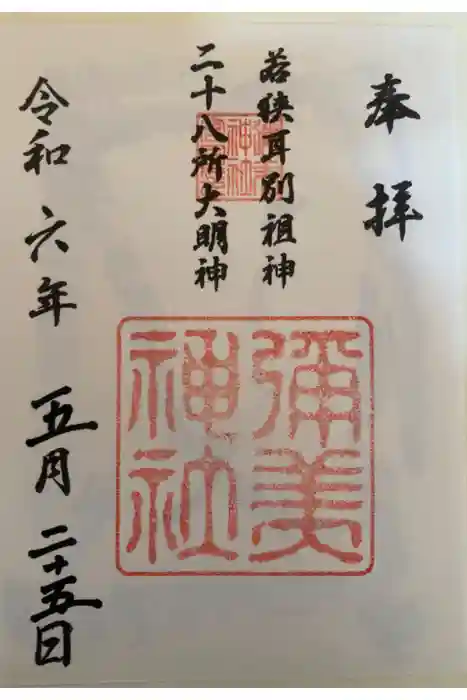 奉拝
若狭耳別祖神
二十八所大明神
彌美
神社
令和六年五月二十五日